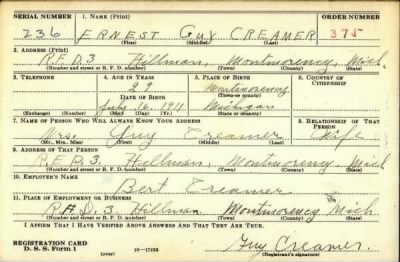 SERIAL NUMBER 1. NAME (Print) ORDER NUMBER
236 ERNEST GUY CREAMER 375
(First) (Middle) (Last)
2. ADDRESS (Print)
R.F.D.3 Hillman, Montmorency, Mich.
(Number and street or R. F. D. number) (Town) (County) (State)
3. TELEPHONE 4. AGE IN YEARS 5. PLACE OF BIRTH 6. COUNTRY OF CITIZENSHIP
29 Montmorency
DATE OF BIRTH (Town or county)
July 16, 1911 Michigan
(Exchange) (Number) (Mo.) (Day) (Yr.) (State or country)
7. NAME OF PERSON WHO WILL ALWAYS KNOW YOUR ADDRESS 8. RELATIONSHIP OF THAT PERSON
Mrs. Guy Creamer Wife
(Mr., Mrs., Miss) (First) (Middle) (Last)
9. ADDRESS OF THAT PERSON
R.F.D.3. Hillman, Montmorency, Mich
(Number and street or R. F. D. number) (Town) (County) (State)
10. EMPLOYER'S NAME
Bert Creamer
11. PLACE OF EMPLOYMENT OR BUSINESS
R.F.D.3 Hillman Montmorency Mich
(Number and street or R. F. D. number) (Town) (County) (State)
I AFFIRM THAT I HAVE VERIFIED ABOVE ANSWERS AND THAT THEY ARE TRUE.
REGISTRATION CARD
D. S. S. Form 1 (over) 16—17105 Guy Creamer.
(Registrant's signature)